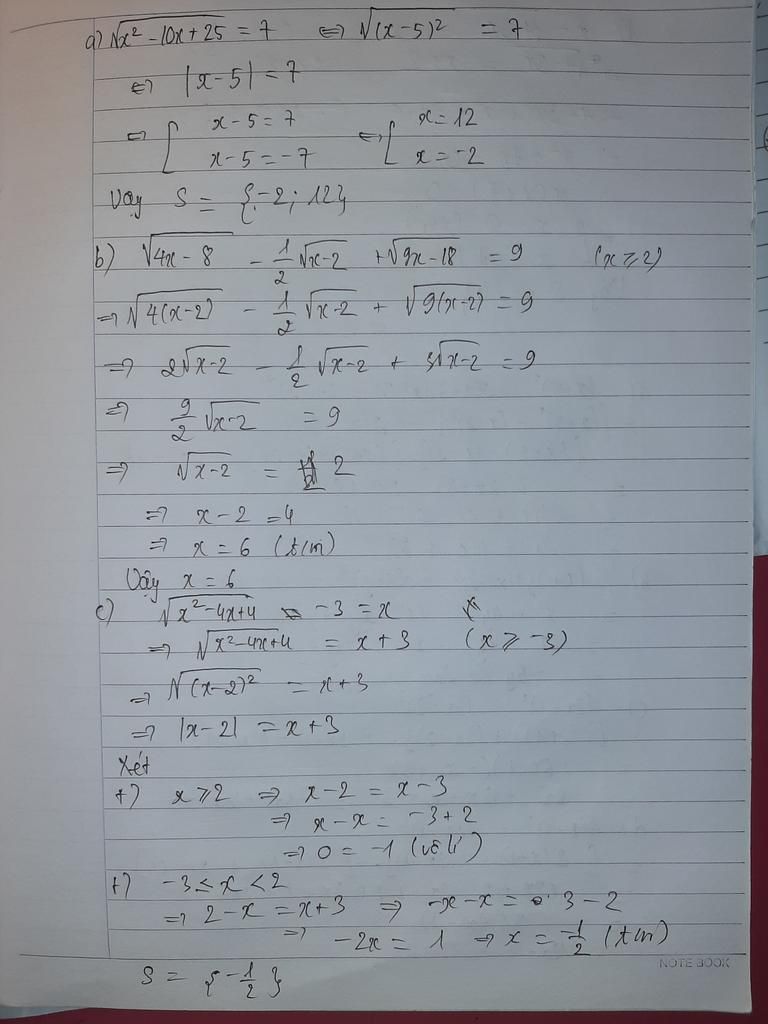 a) √(x² - 10x + 25) = 7 ⇔ √((x-5)²) = 7
⇔ |x-5| = 7
⇔ [ x-5 = 7 ⇔ [ x = 12
x-5 = -7 x = -2
Vậy S = {-2; 12}
b) √(4x-8) - 1/2 √(x-2) + √(9x-18) = 9 (x ≥ 2)
⇒ √(4(x-2)) - 1/2 √(x-2) + √(9(x-2)) = 9
⇒ 2√(x-2) - 1/2 √(x-2) + 3√(x-2) = 9
⇒ 9/2 √(x-2) = 9
⇒ √(x-2) = 2
⇒ x-2 = 4
⇒ x = 6 (t/m)
Vậy x = 6
c) √(x²-4x+4) -3 = x
⇒ √(x²-4x+4) = x+3 (x ≥ -3)
⇒ √((x-2)²) = x+3
⇒ |x-2| = x+3
Xét
+) x ≥ 2 ⇒ x-2 = x-3
⇒ x-x = -3+2
⇒ 0 = -1 (vô lí)
+) -3 ≤ x < 2
⇒ 2-x = x+3 ⇒ -x-x = 3-2
⇒ -2x = 1 ⇒ x = -1/2 (t/m)
NOTE BOOK
S = {-1/2}